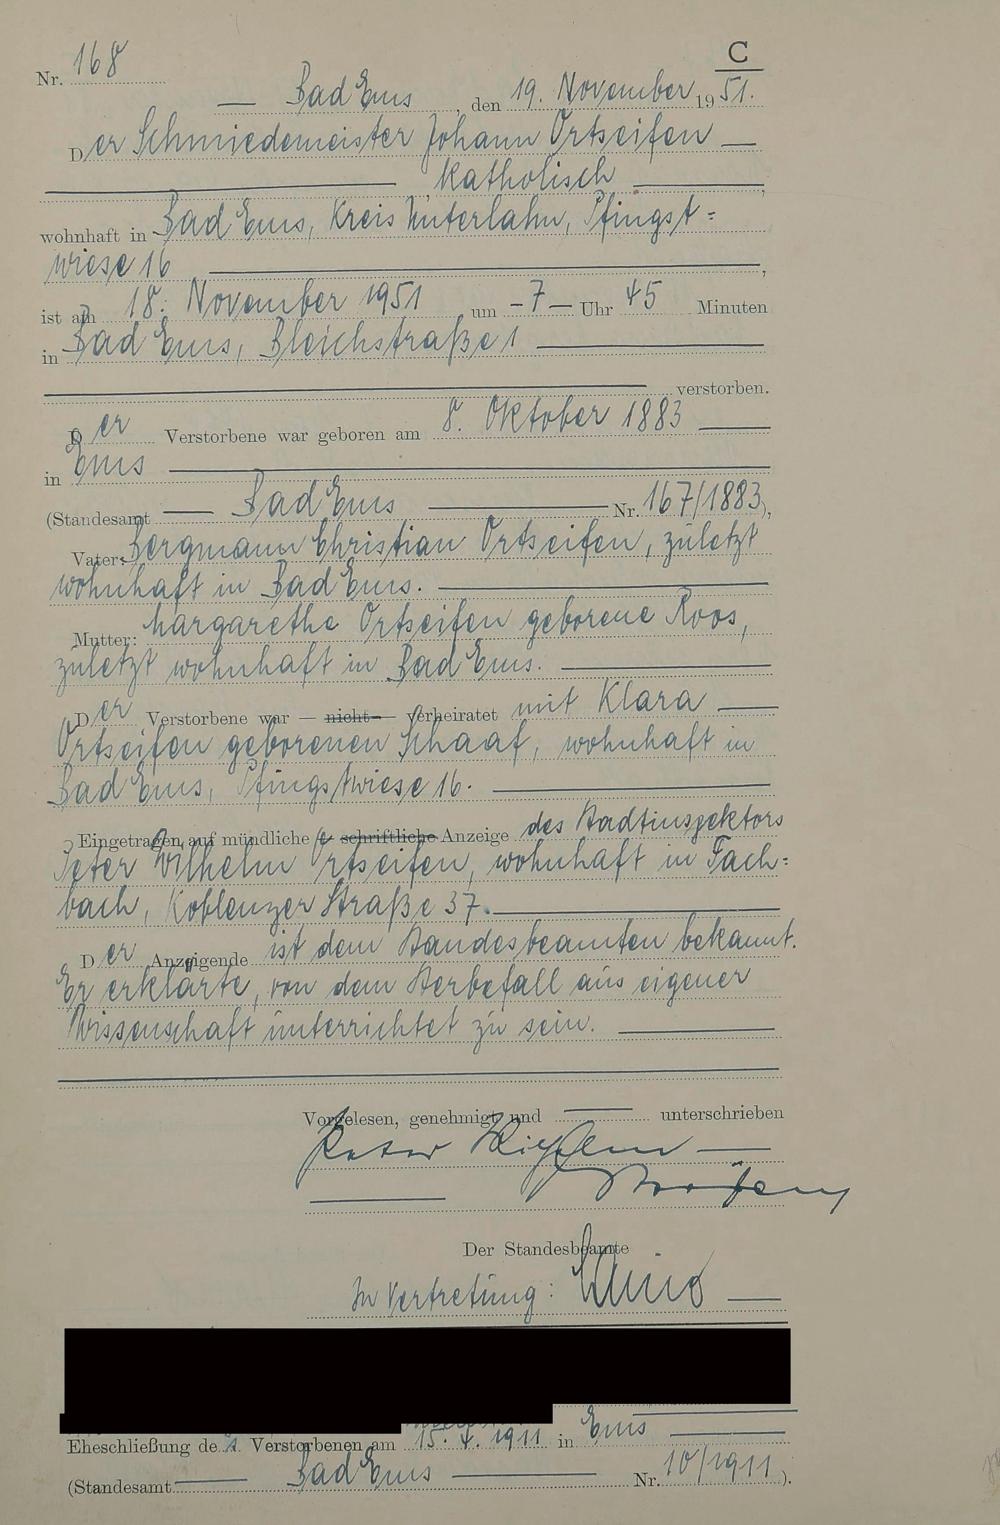 C
Nr. 168
Bad Ems, den 19. November 1951.
Der Schmiedemeister Johann Ortseifen
katholisch,
wohnhaft in Bad Ems, Kreis Unterlahn, Pfingst=
wiese 16,
ist am 18. November 1951 um -7- Uhr 45 Minuten
in Bad Ems, Bleichstraße 1
verstorben.
Der Verstorbene war geboren am 8. Oktober 1883
in Ems
(Standesamt Bad Ems Nr. 167/1883),
Vater: Bergmann Christian Ortseifen, zuletzt
wohnhaft in Bad Ems.
Mutter: Margarethe Ortseifen geborene Roos,
zuletzt wohnhaft in Bad Ems.
Der Verstorbene war — nicht — verheiratet mit Klara
Ortseifen geborenen Schaaf, wohnhaft in
Bad Ems, Pfingstwiese 16.
Eingetragen auf mündliche — schriftliche Anzeige des Stadtinspektors
Peter Wilhelm Ortseifen, wohnhaft in Fach=
bach, Koblenzer Straße 37.
Der Anzeigende ist dem Standesbeamten bekannt.
Er erklärte, von dem Sterbefall aus eigener
Wissenschaft unterrichtet zu sein.
Vorgelesen, genehmigt und unterschrieben
Peter Wilhelm
Ortseifen
Der Standesbeamte
In Vertretung:
Eheschließung des Verstorbenen am 15. 4. 1911 in Ems
(Standesamt Bad Ems Nr. 10/1911).